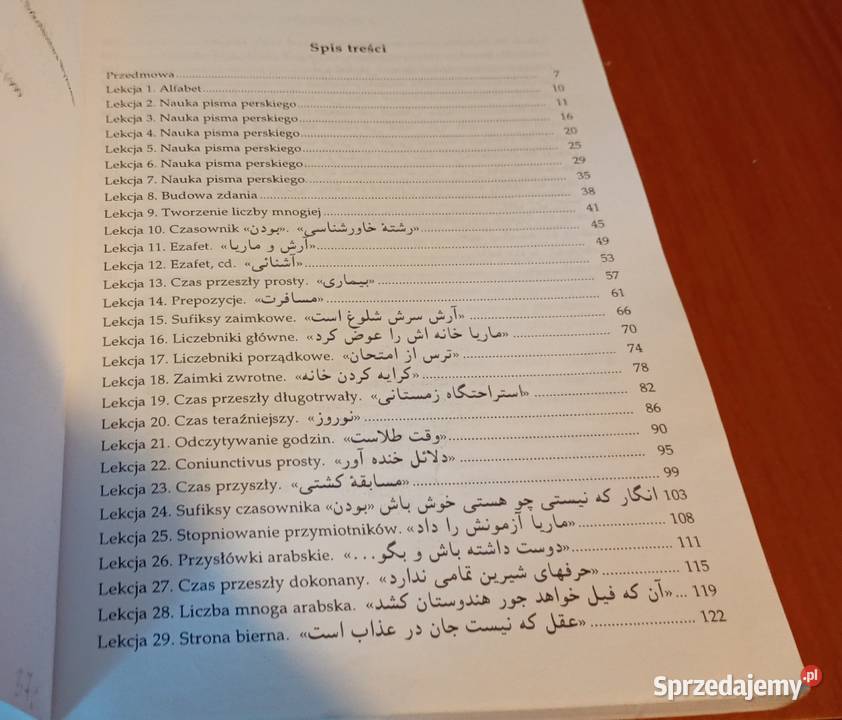 Spis treści
Przedmowa 7
Lekcja 1. Alfabet 10
Lekcja 2. Nauka pisma perskiego 11
Lekcja 3. Nauka pisma perskiego 16
Lekcja 4. Nauka pisma perskiego 20
Lekcja 5. Nauka pisma perskiego 25
Lekcja 6. Nauka pisma perskiego 29
Lekcja 7. Nauka pisma perskiego 35
Lekcja 8. Budowa zdania 38
Lekcja 9. Tworzenie liczby mnogiej 41
Lekcja 10. Czasownik «بودن». «رشتهٔ خاورشناسی» 45
Lekcja 11. Ezafet. «آرش و ماریا» 49
Lekcja 12. Ezafet, cd. «آشنائی» 53
Lekcja 13. Czas przeszły prosty. «بیماری» 57
Lekcja 14. Prepozycje. «مسافرت» 61
Lekcja 15. Sufiksy zaimkowe. «آرش سرش شلوغ است» 66
Lekcja 16. Liczebniki główne. «ماریا خانه اش را عوض کرد» 70
Lekcja 17. Liczebniki porządkowe. «ترس از امتحان» 74
Lekcja 18. Zaimki zwrotne. «کرایه کردن خانه» 78
Lekcja 19. Czas przeszły długotrwały. «استراحتگاه زمستانی» 82
Lekcja 20. Czas teraźniejszy. «نوروز» 86
Lekcja 21. Odczytywanie godzin. «وقت طلاست» 90
Lekcja 22. Coniunctivus prosty. «دلائل خنده آور» 95
Lekcja 23. Czas przyszły. «مسابقهٔ کشتی» 99
Lekcja 24. Sufiksy czasownika «بودن» انگار که نیستی چو هستی خوش باش 103
Lekcja 25. Stopniowanie przymiotników. «ماریا آزمونش را داد» 108
Lekcja 26. Przysłówki arabskie. «دوست داشته باش و بگو...» 111
Lekcja 27. Czas przeszły dokonany. «حرفهای شیرین تمامی ندارد» 115
Lekcja 28. Liczba mnoga arabska. «آن که فیل خواهد جور هندوستان کشد» 119
Lekcja 29. Strona bierna. «عقل که نیست جان در عذاب است» 122
Sprzedajemy.pl